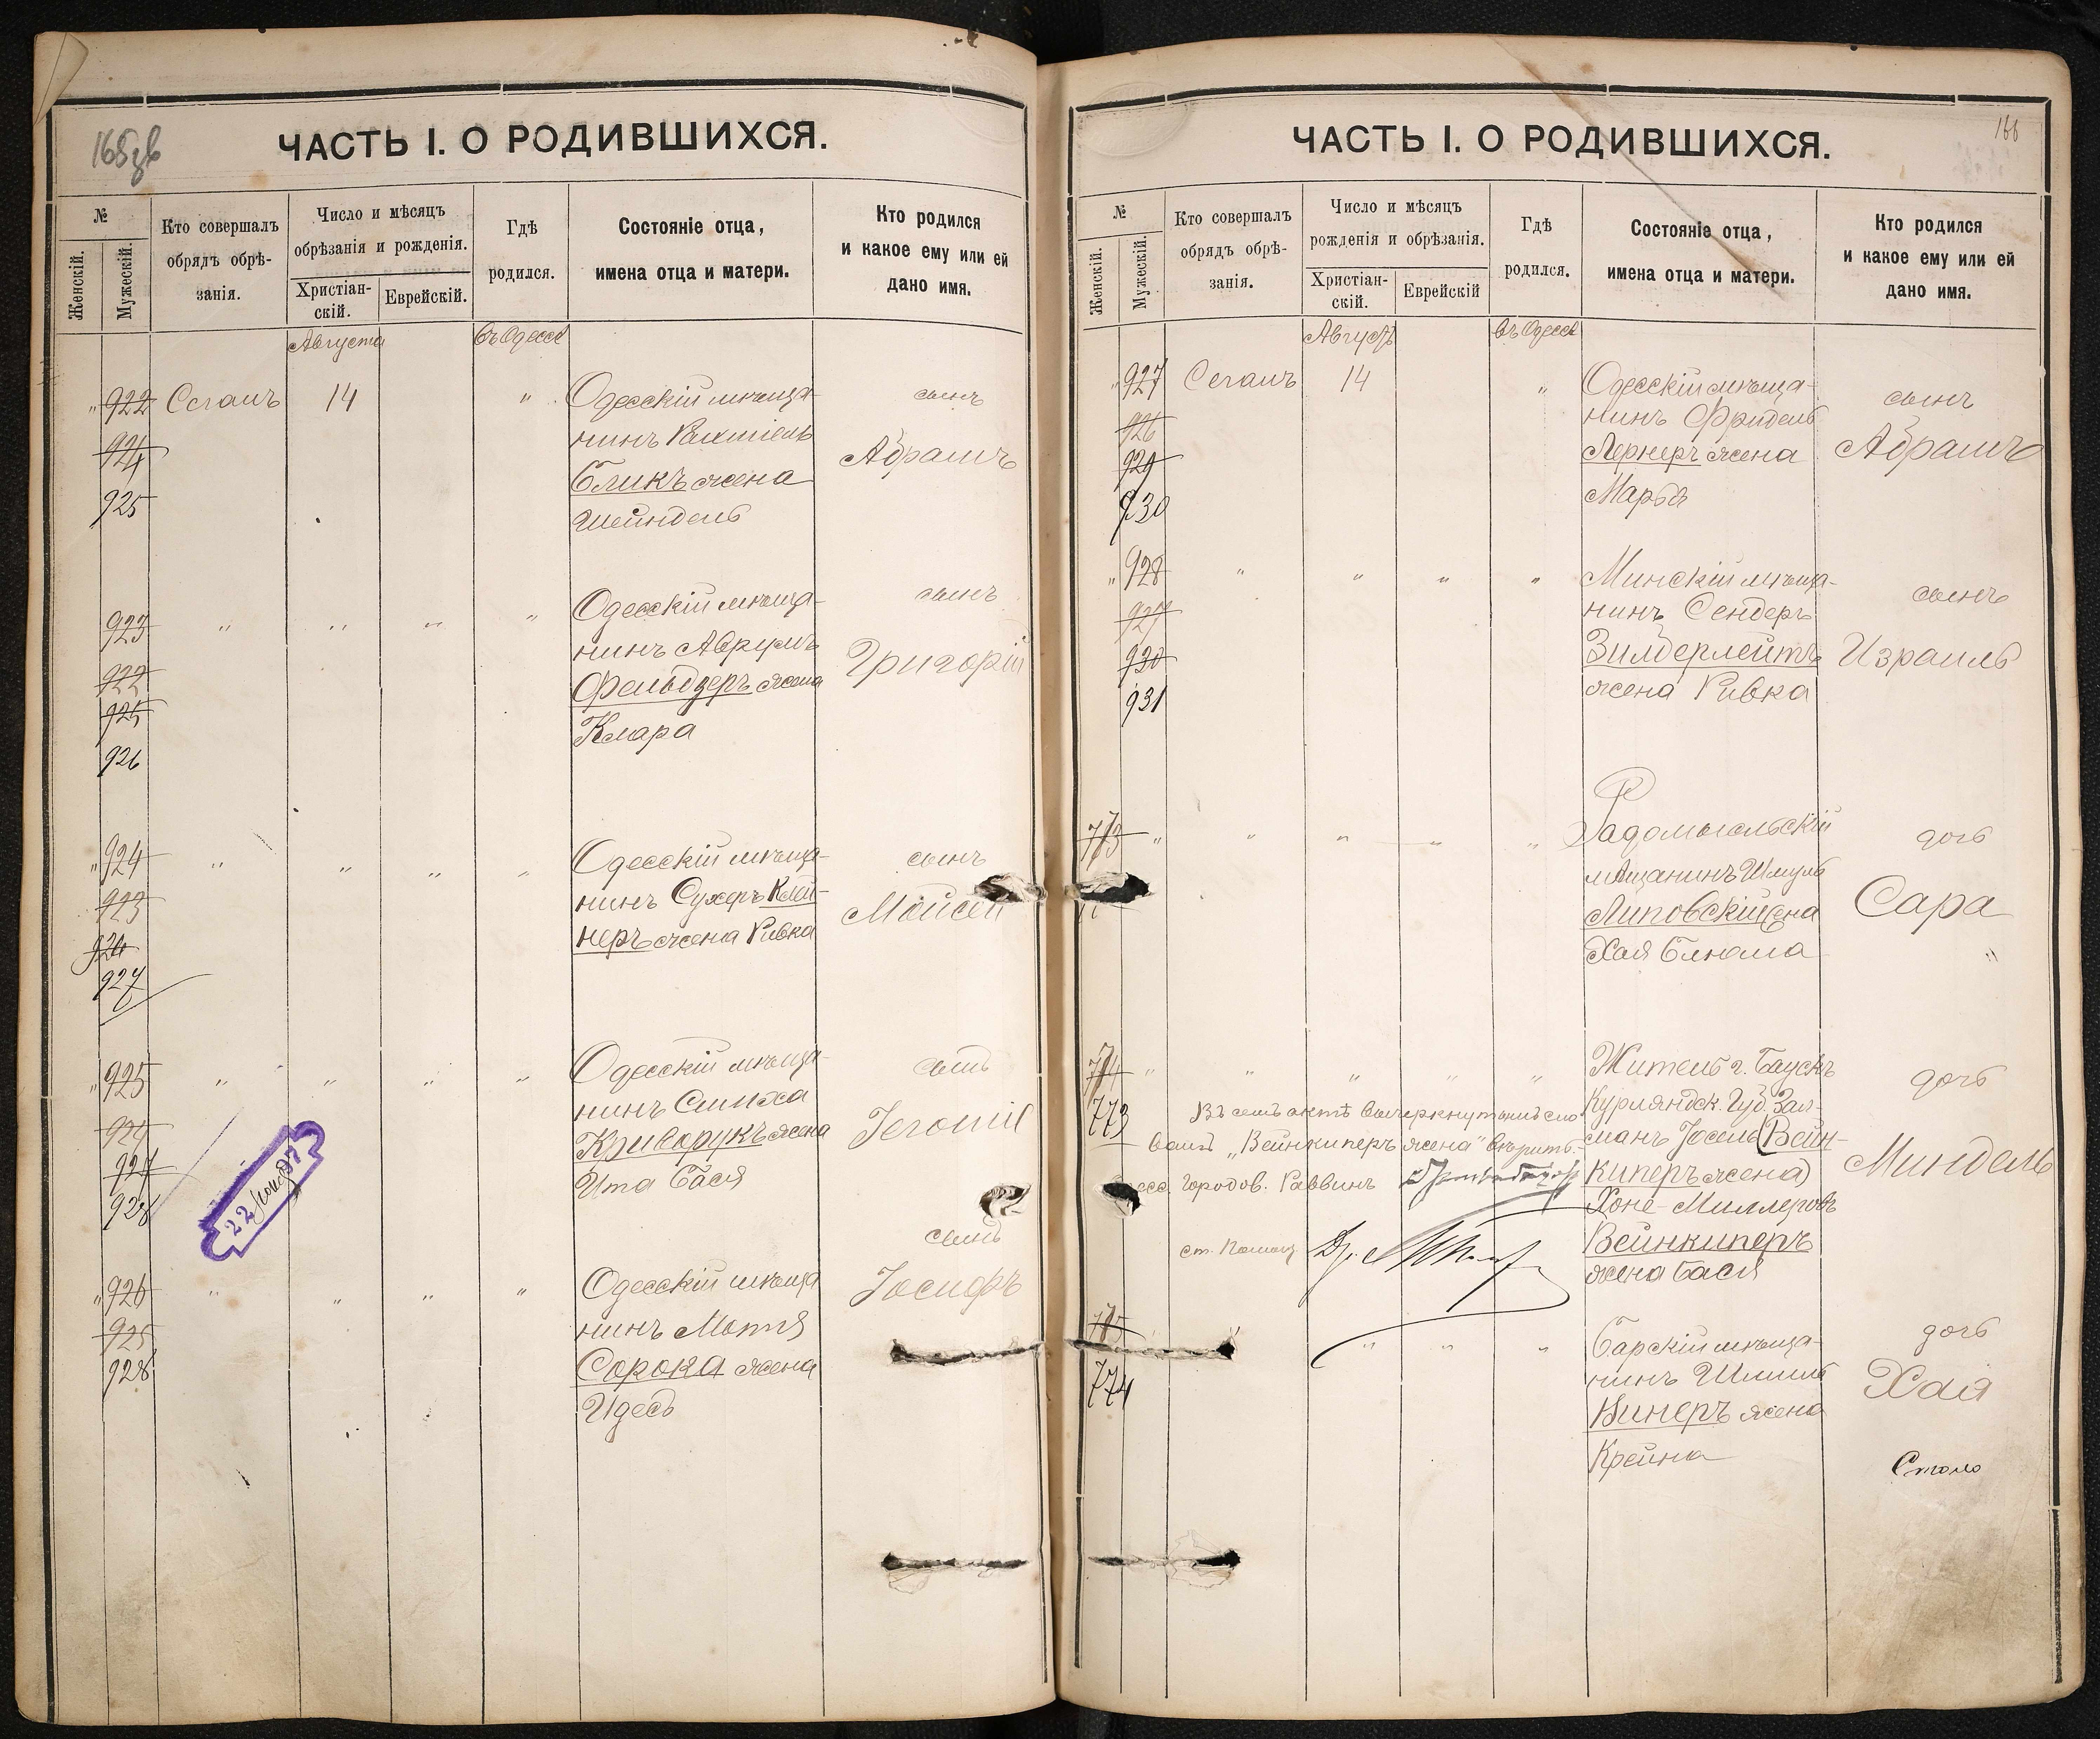 165 зв
ЧАСТЬ I. О РОДИВШИХСЯ.
№
Женскій.
Мужескій.
Кто совершалъ
обрядъ обрѣ-
занія.
Число и мѣсяцъ
обрѣзанія и рожденія.
Христіан-
скій.
Еврейскій.
Гдѣ
родился.
Состояніе отца,
имена отца и матери.
Кто родился
и какое ему или ей
дано имя.
Августа
въ Одессѣ
" 922 Сегалъ 14 " Одесскій мѣща-
нинъ Рахмiель
Бликъ жена
Шейндель
сынъ
Абрамъ
924
925
923 " " " " Одесскій мѣща-
нинъ Аврумъ
Фельдзеръ жена
Клара
сынъ
Григорій
922
925
926
" 924 " " " " Одесскій мѣща-
нинъ Сухеръ Клей-
неръ жена Ривка
сынъ
Мойсей
923
926
927
" 925 " " " " Одесскій мѣща-
нинъ Симха
Криворукъ жена
Ита Бася
сынъ
Іегошiя
924
927
928
22 1897
" 926 " " " " Одесскій мѣща
нинъ Мотя
Сорока жена
Идесь
сынъ
Іосифъ
925
928
166
ЧАСТЬ I. О РОДИВШИХСЯ.
№
Женскій.
Мужескій.
Кто совершалъ
обрядъ обрѣ-
занія.
Число и мѣсяцъ
рожденія и обрѣзанія.
Христіан-
скій.
Еврейскій
Гдѣ
родился.
Состояніе отца,
имена отца и матери.
Кто родился
и какое ему или ей
дано имя.
Августъ
въ Одессѣ
" 927 Сегалъ 14 " Одесскій мѣща-
нинъ Фридель
Лернеръ жена
Марья
сынъ
Абрамъ
926
929
930
" 928 " " " " Минскій мѣща-
нинъ Сендеръ
Зилберлейтъ
жена Ривка
сынъ
Израиль
927
930
931
773 " " " " " Радомысльскій
мѣщанинъ Шмуль
Липовскій жена
Хая Блюма
дочь
Сара
774 " " " " " Житель г. Баускъ
Курляндск. Губ. Зал-
манъ Іосель (Вейн-
киперъ жена)
Хоне-Миллеровъ
Вейнкиперъ
жена Бася
дочь
Миндель
773
Въ семъ актѣ вычеркнутымъ сло
вамъ „Вейнкиперъ жена" вѣрить.
Одесс. Городов. Раввинъ
ст. Помощ. Др.
775 " " " Барскій мѣща-
нинъ Шмиль
Винеръ жена
Крейна
дочь
Хая
774
Столо